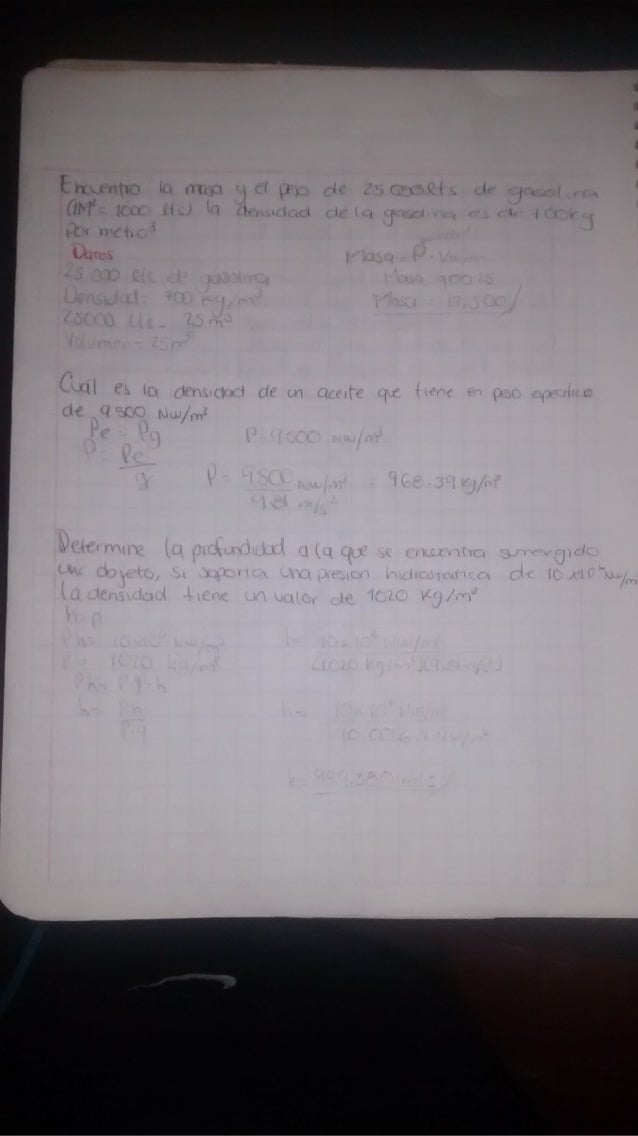 Encuentro la masa y el peso de 25 000 lts de gasolina
(1M³ = 1000 lts) la densidad de la gasolina es de 700kg
por metro³
Datos
Masa = P · 
25 000 lts de gasolina
Masa 700 25
Densidad: 700 kg/m³
Masa = 17,500/
25000 Lts - 25 m³
Volumen = 25m³
Cuál es la densidad de un aceite que tiene en peso especifico
de 9500 Nw/m³
Pe = Pg
P = 9500 Nw/m³
P = Pe/g
P = 9500 Nw/m³ / 9.81 m/s² = 968.39 kg/m³
Determine la profundidad a la que se encuentra sumergido
un objeto, si soporta una presion hidrostatica de 10x10⁶ Nw/m
la densidad tiene un valor de 1020 Kg/m³
h = p
Ph = 10x10⁶ Nw/m²
h = 10x10⁶ Nw/m² / (1020 kg/m³)(9.81m/s²)
P = 1020 kg/m³
Ph = Pg · h
h = Ph/
h = 10x10⁶ Nw/m² / 10 006.2 Nw/m³
h = 999.380